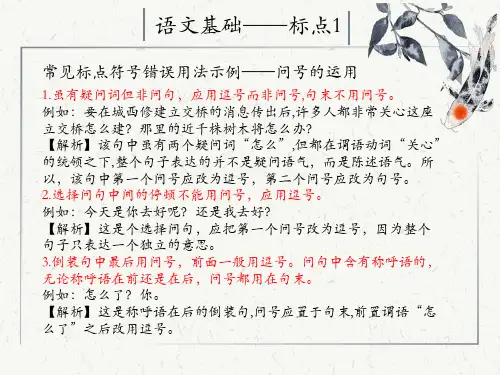 语文基础——标点1
常见标点符号错误用法示例——问号的运用
1.虽有疑问词但非问句，应用逗号而非问号,句末不用问号。
例如：要在城西修建立交桥的消息传出后,许多人都非常关心这座
立交桥怎么建？那里的近千株树木将怎么办？
【解析】该句中虽有两个疑问词“怎么”,但都在谓语动词“关心”
的统领之下,整个句子表达的并不是疑问语气，而是陈述语气。所
以，该句中第一个问号应改为逗号，第二个问号应改为句号。
2.选择问句中间的停顿不能用问号，应用逗号。
例如：今天是你去好呢？还是我去好？
【解析】这是个选择问句，应把第一个问号改为逗号，因为整个
句子只表达一个独立的意思。
3.倒装句中最后用问号，前面一般用逗号。问句中含有称呼语的，
无论称呼语在前还是在后，问号都用在句末。
例如：怎么了？你。
【解析】这是称呼语在后的倒装句,问号应置于句末,前置谓语“怎
么了”之后改用逗号。